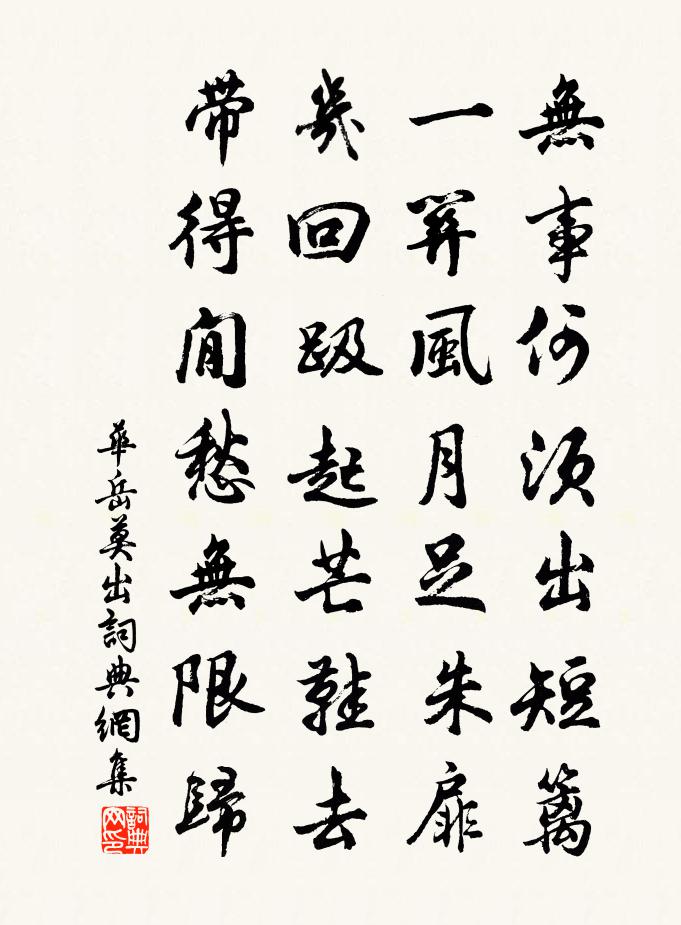 無事何須出短籬
一笄風月足朱扉
幾回趿起芒鞋去
帶得閒愁無限歸
華岳莫出詞典網集
詞典网印